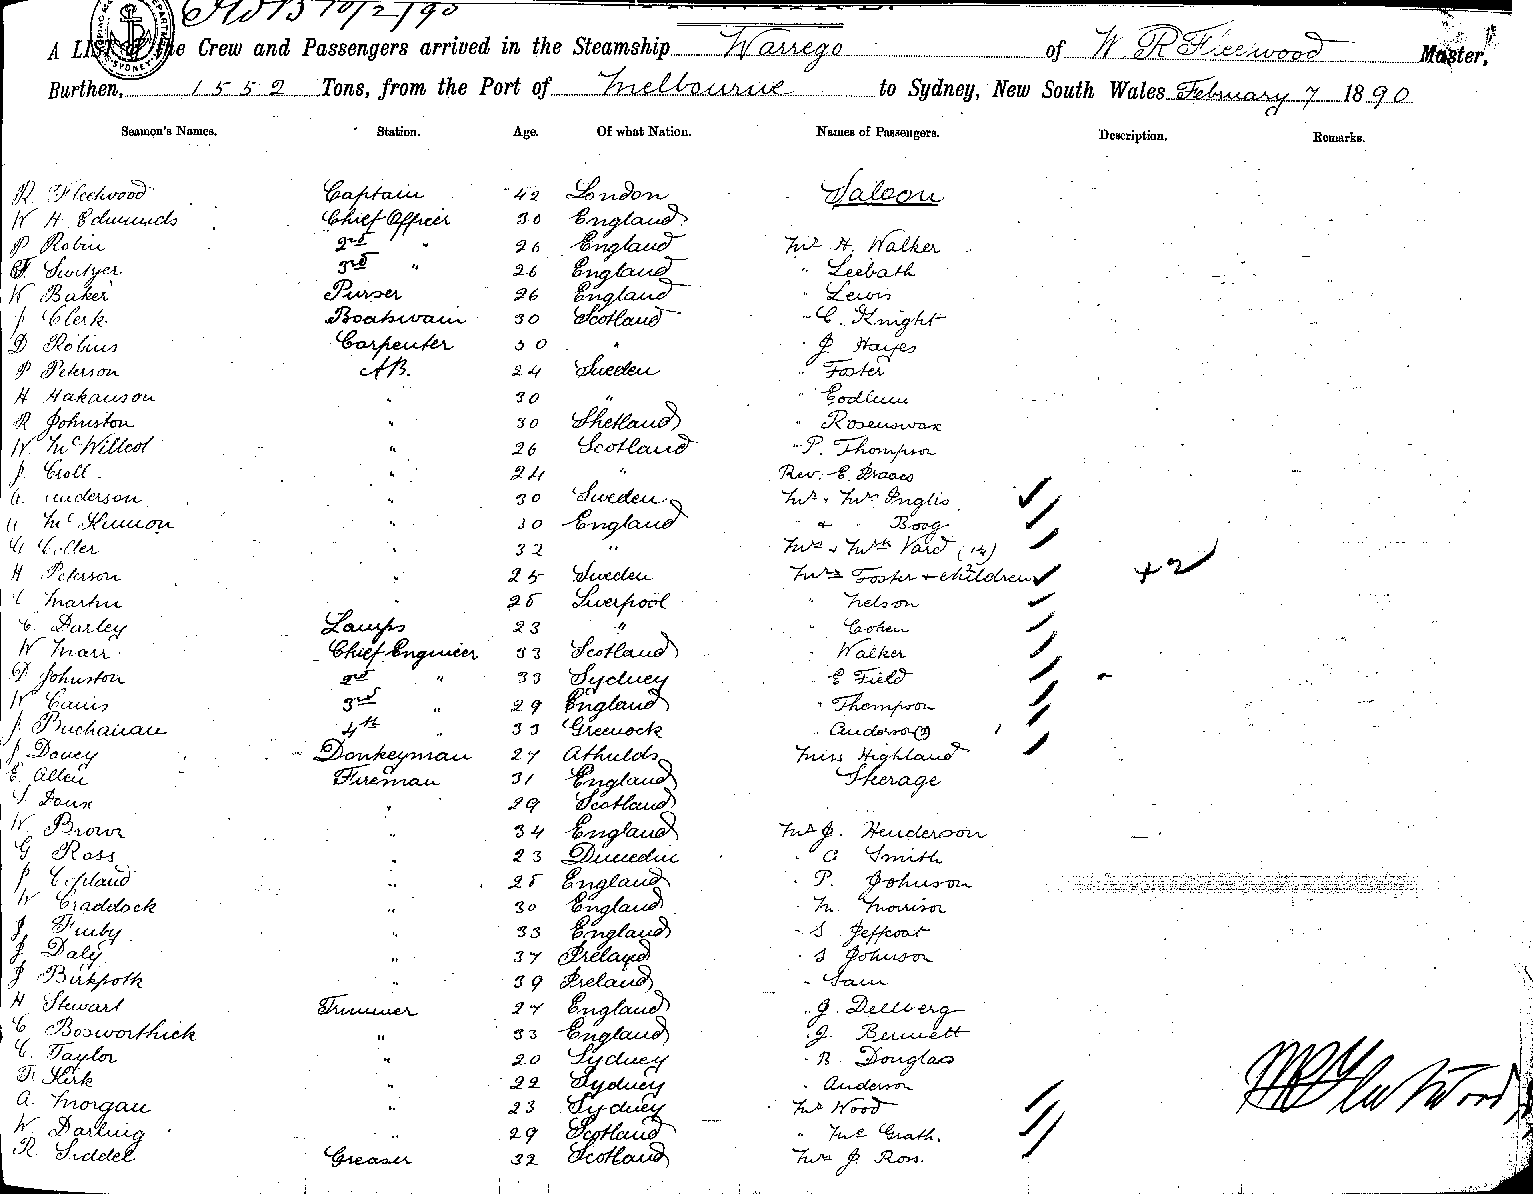 10/2/90
A LIST of the Crew and Passengers arrived in the Steamship Warrego of W R Fleewood Master,
Burthen, 1552 Tons, from the Port of Melbourne to Sydney, New South Wales February 7 1890
Seamen's Names. Station. Age. Of what Nation. Names of Passengers. Description. Remarks.
R Fleetwood Captain 42 London Saloon
W H Edmunds Chief Officer 30 England
P Robin 2nd " 26 England Mr H. Walker
F Switzer 3rd " 26 England " Leebath
W Baker Purser 26 England " Lewis
J Clerk Boatswain 30 Scotland " C. Knight
D Robins Carpenter 30 " " J Hayes
P Peterson AB. 24 Sweden " Foster
H Hakanson " 30 " " Godlum
R Johnston " 30 Shetland " Rosenswax
W. McWillcol " 26 Scotland " P. Thompson
J. Croll " 24 " Rev. E. Isaacs
A. Anderson " 30 Sweden Mr & Mrs Inglis
Mc Kinnon " 30 England " & " Boog
Colter " 32 " Mrs & Miss Vard
H Peterson " 25 Sweden Mrs Foster & 2 children +2
Martin " 25 Liverpool " Nelson
C. Darley Lamps 23 " " Cohen
W Marr Chief Engineer 33 Scotland " Walker
D Johnston 2nd " 33 Sydney " E Field
W Cains 3rd " 29 England " Thompson
J. Buchanan 4th " 33 Greenock " Anderson
J Davey Donkeyman 27 Miss Highland
E Allen Fireman 31 England Sterage
" 29 Scotland
W Brown " 34 England Mr J. Henderson
G Ross " 23 Dunedin " C Smith
J Copland " 25 England " P. Johnson
W Craddock " 30 England " M. Morrison
J Furby " 33 England " S Jeffcoat
J Daly " 37 Ireland " S Johnson
J Birkpoth " 39 Ireland " Sam
H Stewart Trimmer 27 England " J. Dellberg
C Bosworthick " 33 England " J. Bennett
C. Taylor " 20 Sydney " B Douglass
F. Kirk " 22 Sydney " Anderson
A. Morgan " 23 Sydney Mrs Wood
W. Darling " 29 Scotland " McGrath.
R Siddel Greaser 32 Scotland Mrs J. Ross.